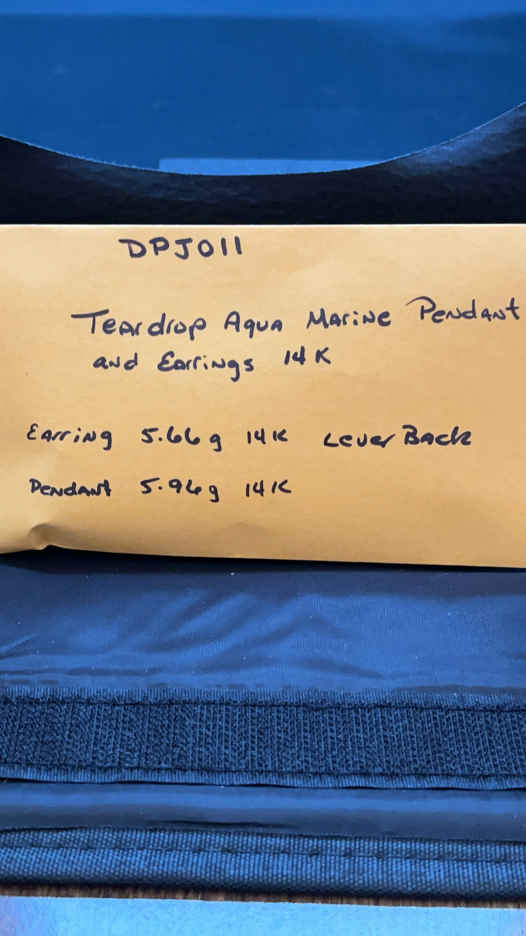 DPJ011
Teardrop Aqua Marine Pendant
and Earrings 14K
Earring 5.66g 14K Lever Back
Pendant 5.96g 14K